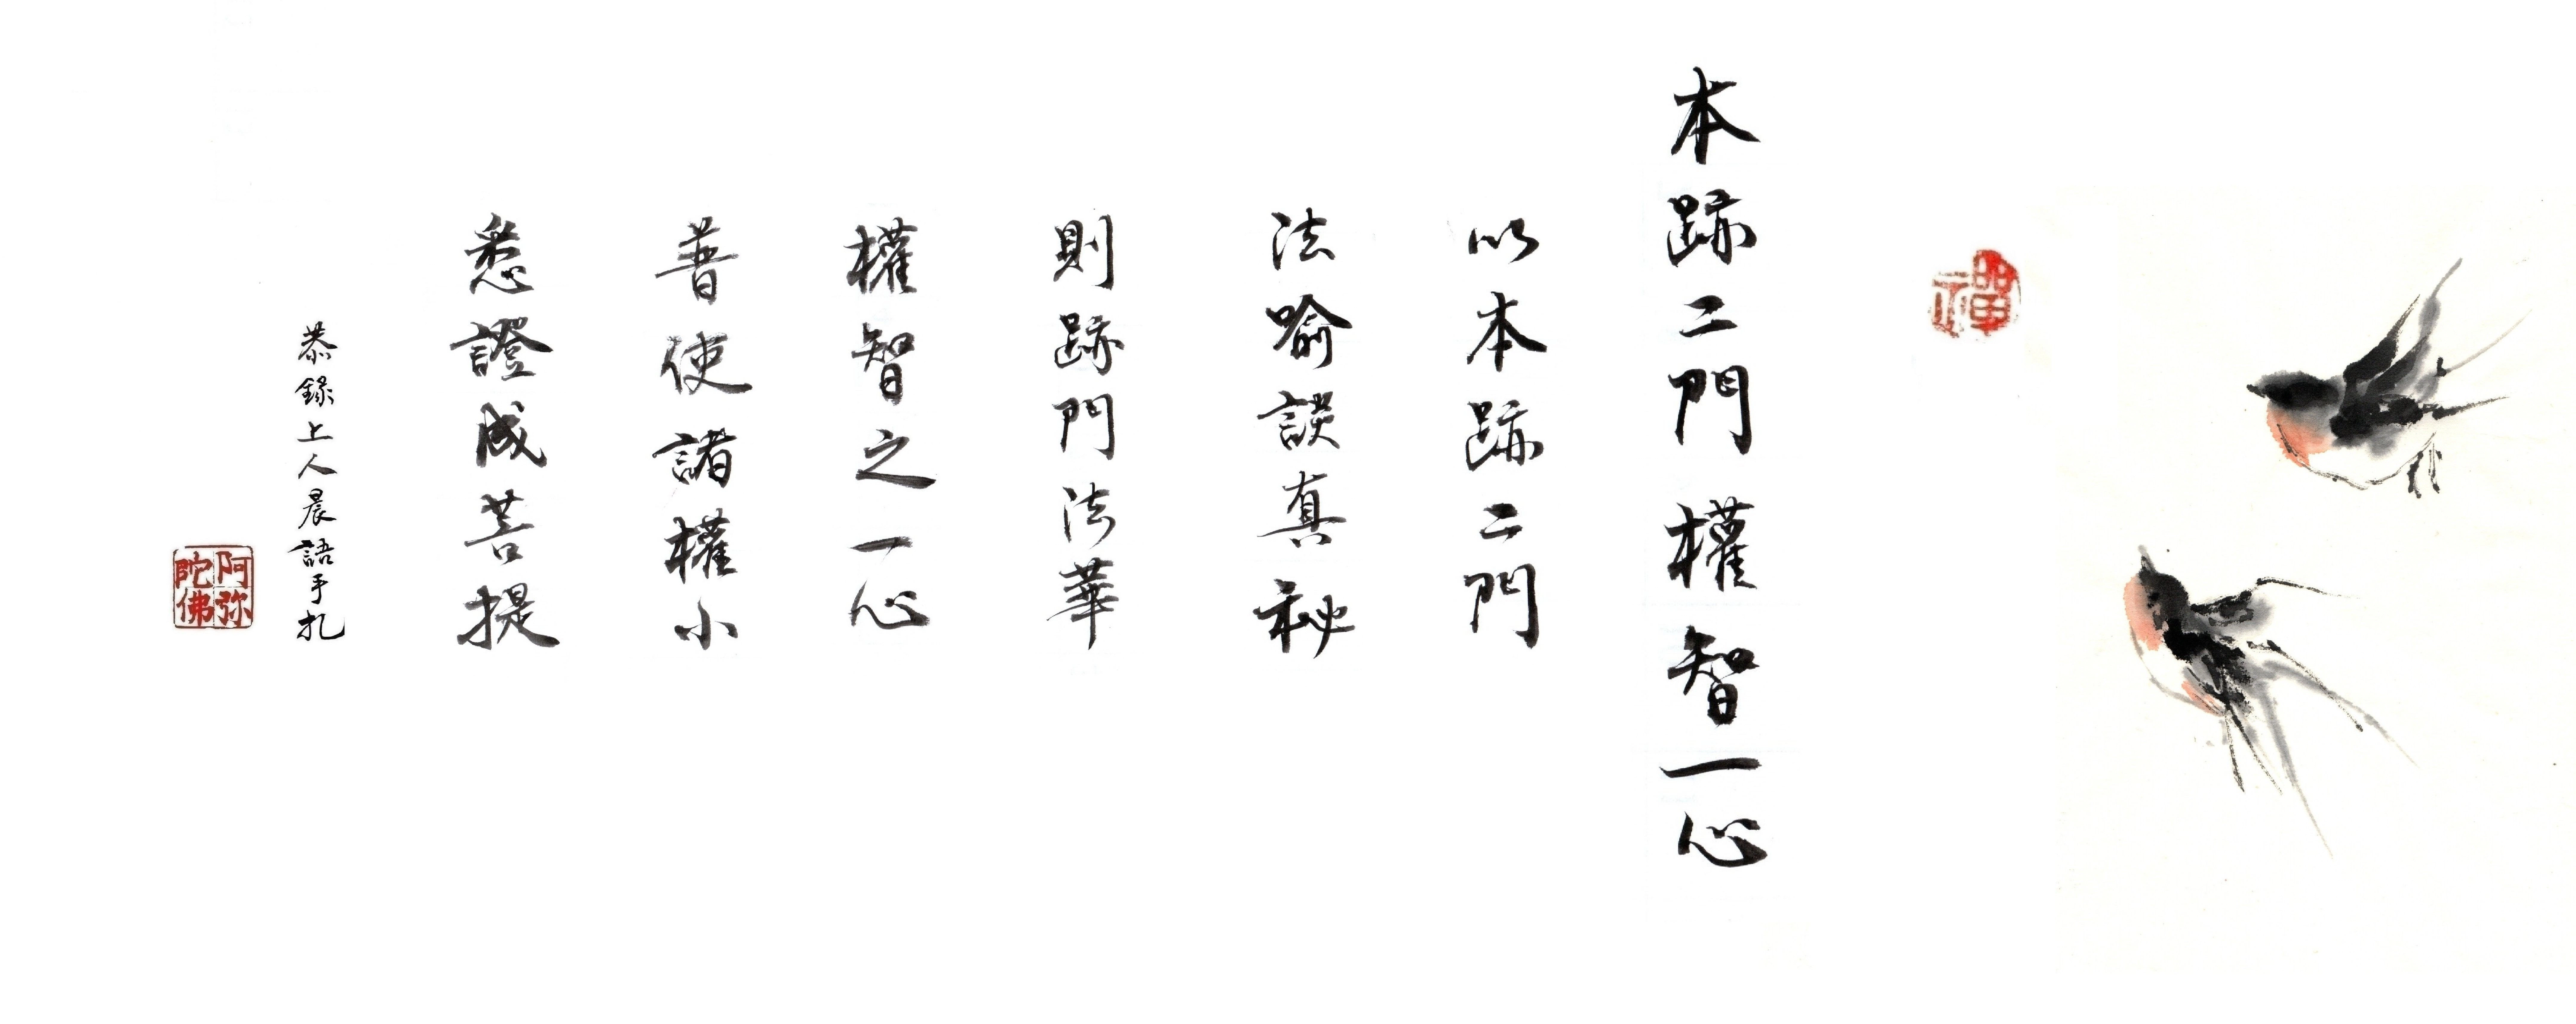 禪
本跡二門權智一心
以本跡二門
法喻談真秘
則跡門法華
權智之一心
普使諸權小
悉證成菩提
恭錄上人晨語手札
阿弥陀佛